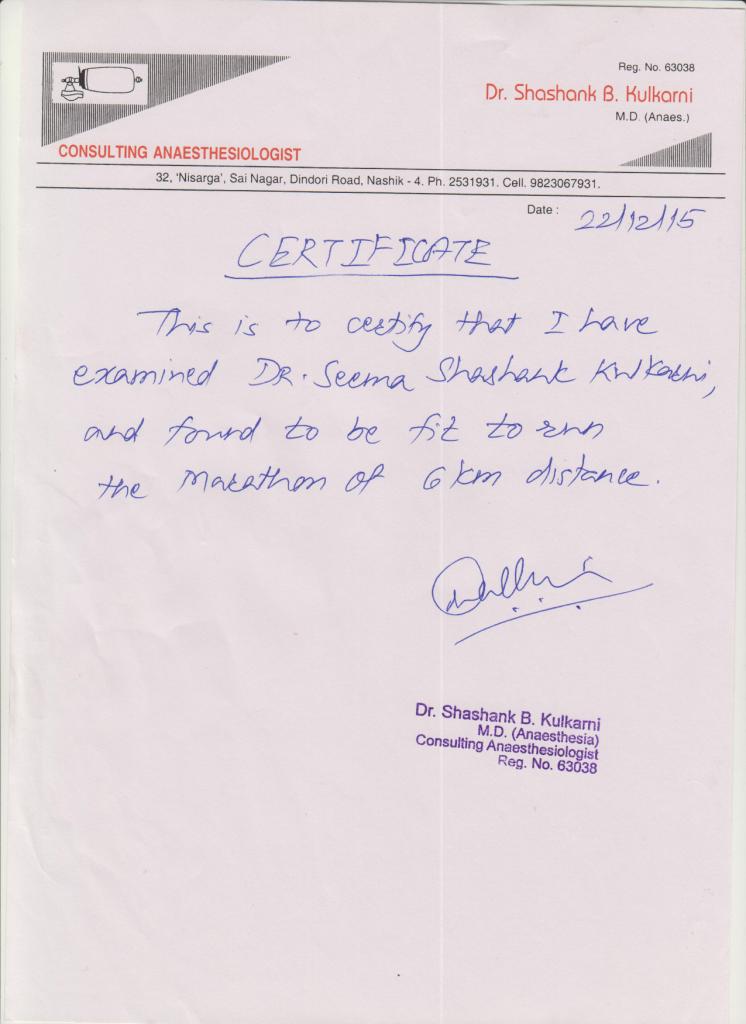 Reg. No. 63038
Dr. Shashank B. Kulkarni
M.D. (Anaes.)
CONSULTING ANAESTHESIOLOGIST
32, 'Nisarga', Sai Nagar, Dindori Road, Nashik - 4. Ph. 2531931. Cell. 9823067931.
Date : 22/12/15
CERTIFICATE
This is to certify that I have
examined DR. Seema Shashank Kulkarni,
and found to be fit to run
the Marathon of 6 km distance.
Dr. Shashank B. Kulkarni
M.D. (Anaesthesia)
Consulting Anaesthesiologist
Reg. No. 63038